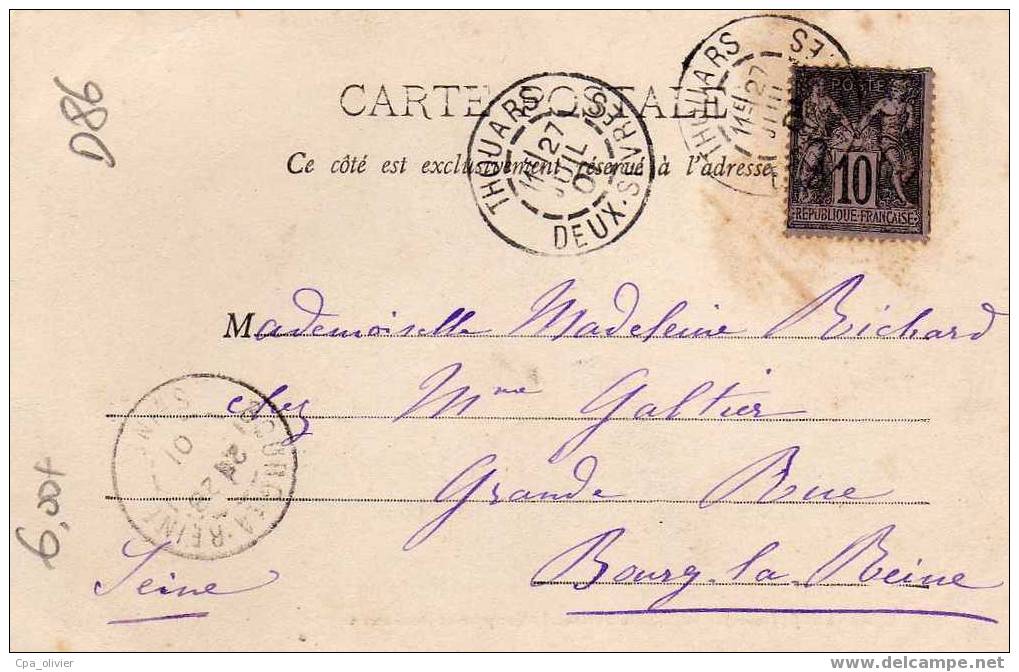 D86
CARTE POSTALE
Ce côté est exclusivement réservé à l'adresse
THOUARS
11E/27
JUIL
01
DEUX-SÈVRES
THOUARS
11E/27
POSTE
10
REPUBLIQUE FRANÇAISE
Mademoiselle Madeleine Richard
chez Mme Galtier
Grande Rue
Bourg-la-Reine
Seine
BOURG-LA-REINE
01
6,00+
Cpa_olivier
www.delcampe.net